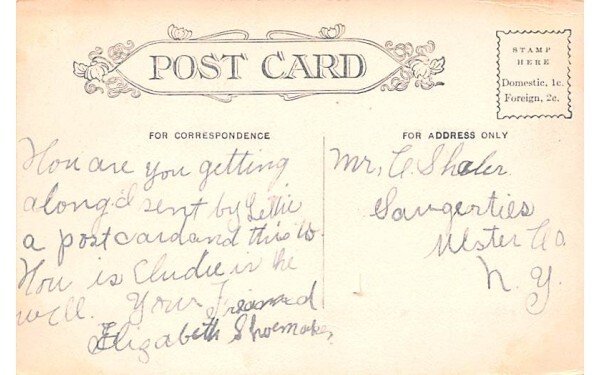 POST CARD
STAMP
HERE
Domestic, 1c.
Foreign, 2c.
FOR CORRESPONDENCE
How are you getting
along I sent by Lettie
a post card and this is
How is Cludie is he
well. Your Friend
Elizabeth Shoemaker
FOR ADDRESS ONLY
Mr. C Shaler
Saugerties
Ulster Co
N. Y.